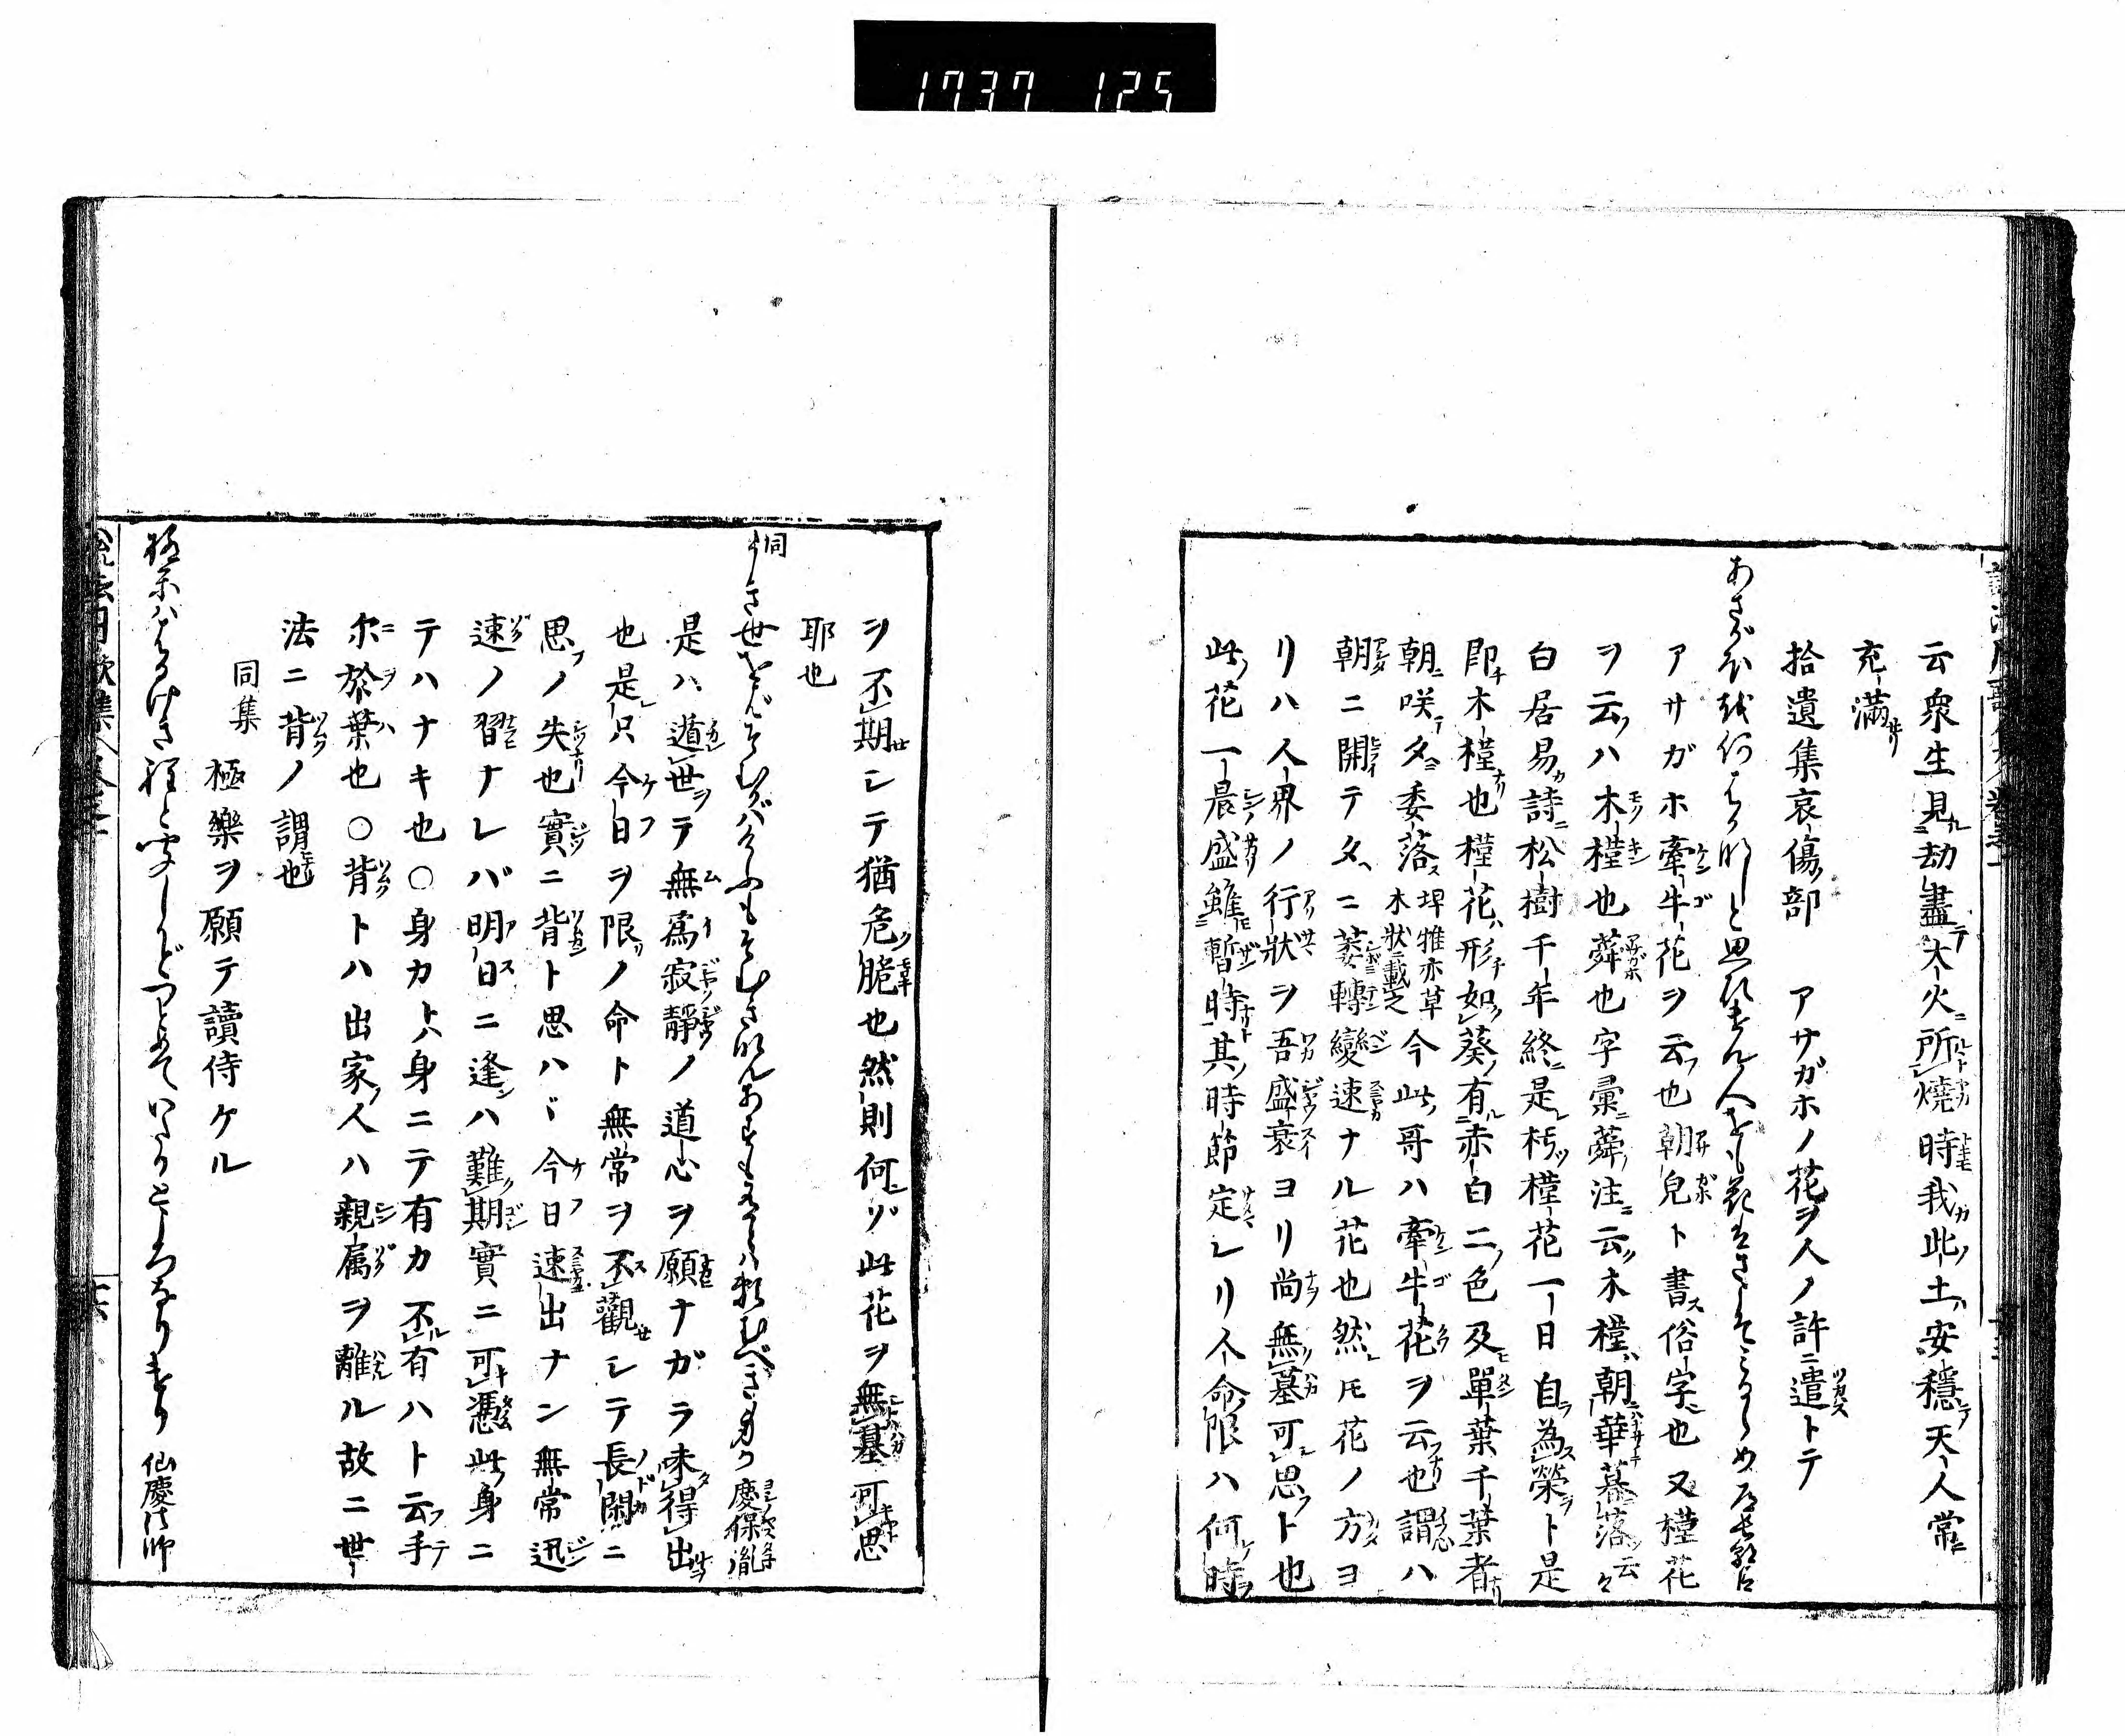 1737 125
云衆生見劫盡大火所燒時我此土安穩天人常
充滿
拾遺集哀傷部　アサガホノ花ヲ人ノ許ニ遣トテ
あさがほを何はかなしと思ひけん人をも花はさこそみるらめ 道信朝臣
アサガホ牽牛花ヲ云也朝皃ト書俗字也又槿花
ヲ云ハ木槿也蕣也字彙蕣注云木槿朝華暮落云々
白居易詩松樹千年終是朽槿花一日自為榮ト是
即木槿也槿花形如葵有赤白二色及單葉千葉者
朝咲夕委落 埤雅亦草木狀載之 今此哥ハ牽牛花ヲ云也謂ハ
朝ニ開テ夕ニ萎轉變速ナル花也然モ花ノ方ヨ
リハ人界ノ行狀ヲ吾盛衰ヨリ尚無墓可思ト也
此花一晨盛雖暫時其時節定レリ人命限ハ何時
ヲ不期シテ猶危脆也然則何ゾ此花ヲ無墓可思
耶也
同
うき世をばそむかばけふもそむきなんあすもありとは頼むべき身か 慶保胤
是ハ遁世テ無爲寂靜ノ道心ヲ願ナガラ未得出
也是只今日ヲ限ノ命ト無常ヲ不觀シテ長閑ニ
思ノ失也實ニ背ト思ハヾ今日速出ナン無常迅
速ノ習ナレバ明日ニ逢ハ難期實ニ可憑此身ニ
テハナキ也○身カトハ身ニテ有カ不有ハト云手
尓於葉也○背トハ出家人ハ親属ヲ離ル故ニ世
法ニ背ノ謂也
同集　極樂ヲ願テ讀侍ケル
極樂ははるけき程と聞しかどつとめていたるところなりけり 仙慶法師